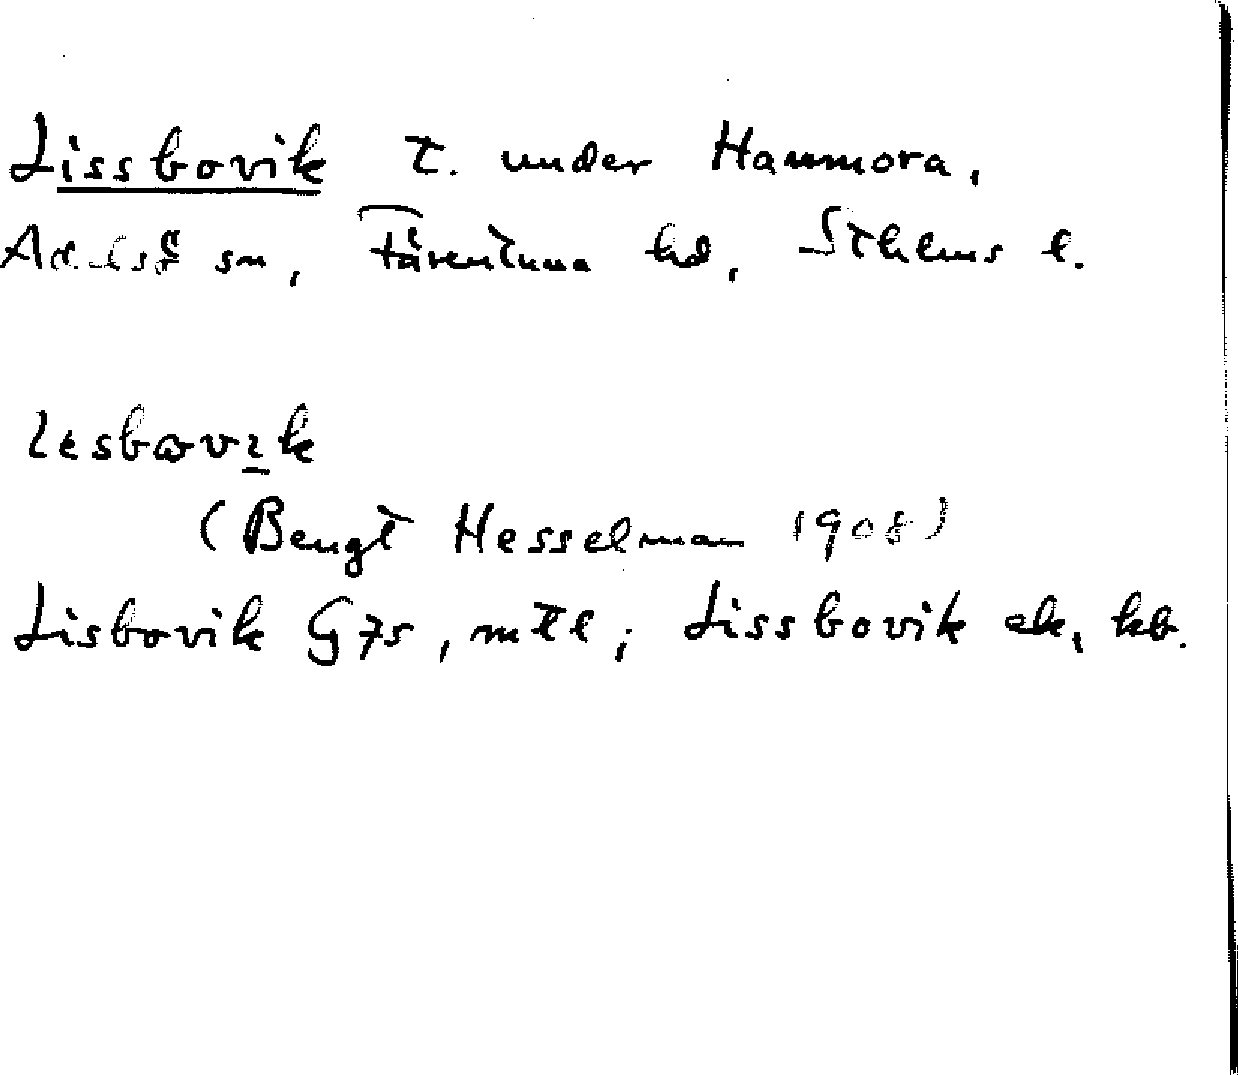 Lissbovik t. under Hammora,
Adelsö sn, Färentuna hd, Sthlms l.
(Bengt Hesselman 1908)
Lisbovik G 75, mtl; Lissbovik ek, kb.